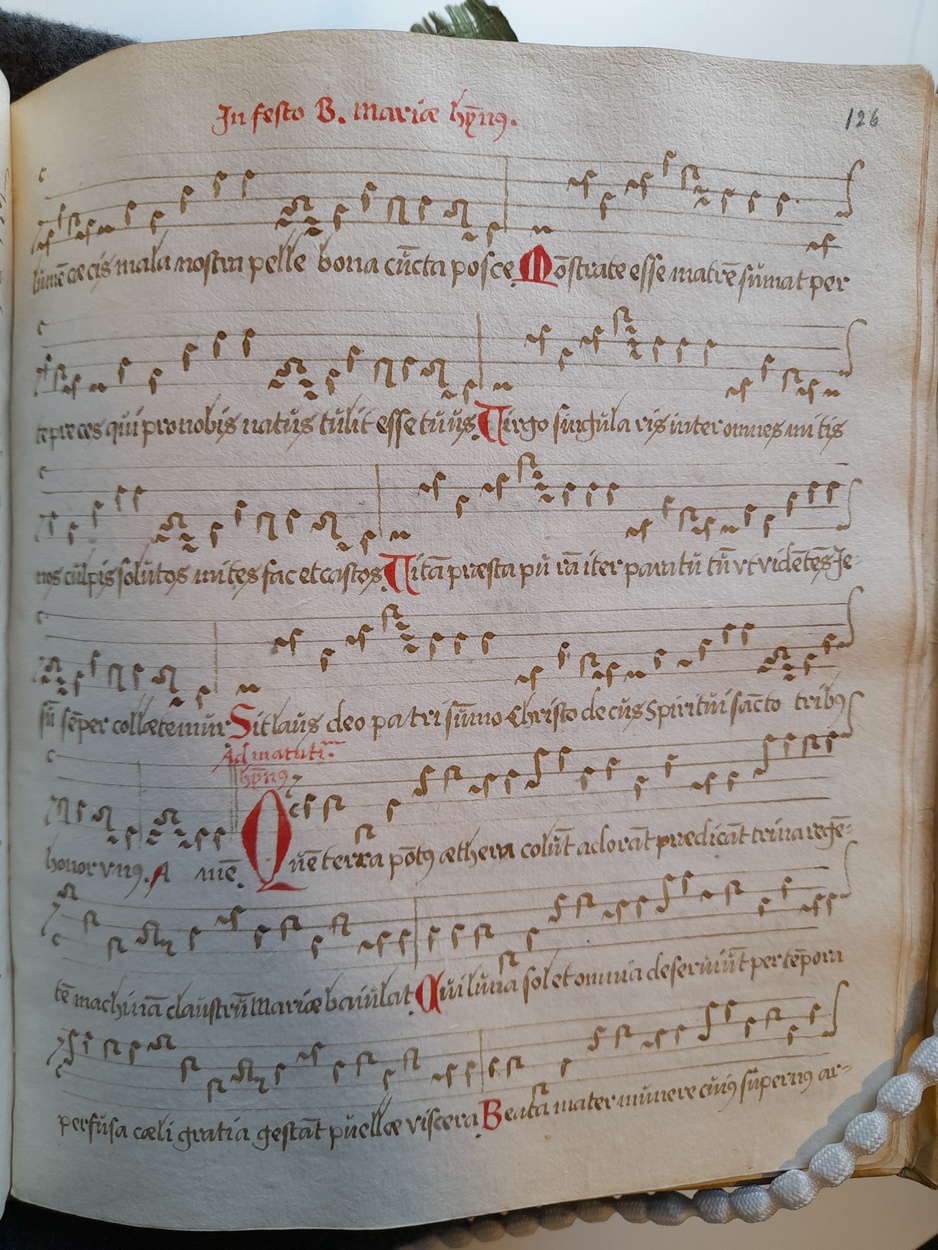 In festo B. Mariæ hȳnꝯ.
126
lumē cæcis mala nostra pelle bona cūcta posce. Mōstrate esse matrē sumat per
te preces qui pro nobis natus tulit esse tuus. Virgo singularis inter omnes mitis
nos culpis solutos mites fac et castos. Vitā præsta purā iter para tutū vt videntes Je-
sū sēper collætemur Sit laus deo patri sūmo Christo decus Spiritui sācto tribꝯ
Ad matuti.
hȳnꝯ
honor vnꝯ. A mē. Quē terra pōtꝯ æthera colūt adorāt prædicāt trina regē-
tē machinā claustrū Mariæ baiulat. Qui luna sol et omnia deserviūt per tēpora
perfusa cæli gratia gestāt puellæ viscera Beata mater munere cuiꝯ supernꝯ ar-